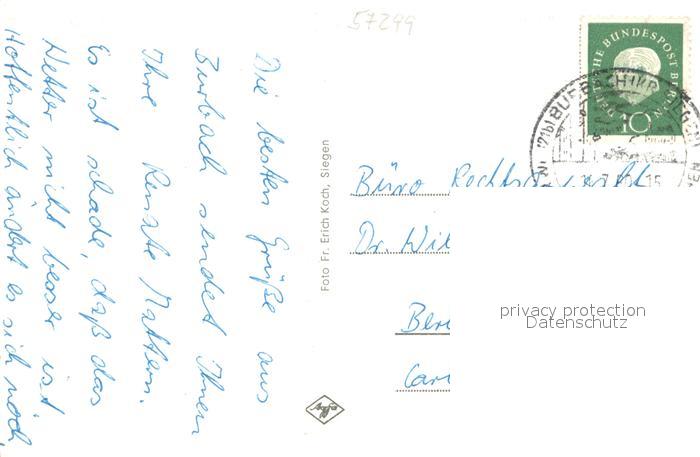 57299
DEUTSCHE BUNDESPOST BERLIN
10
(21b) BURBACH (KR.
15
Die besten Grüße aus
Burbach sendet Ihnen
Ihre Renate Mattern.
Es ist schade, daß das
Wetter nicht besser ist.
Hoffentlich ändert es sich noch.
Foto Fr. Erich Koch, Siegen
Büro
Dr. Wil
Ber
Car
privacy protection
Datenschutz